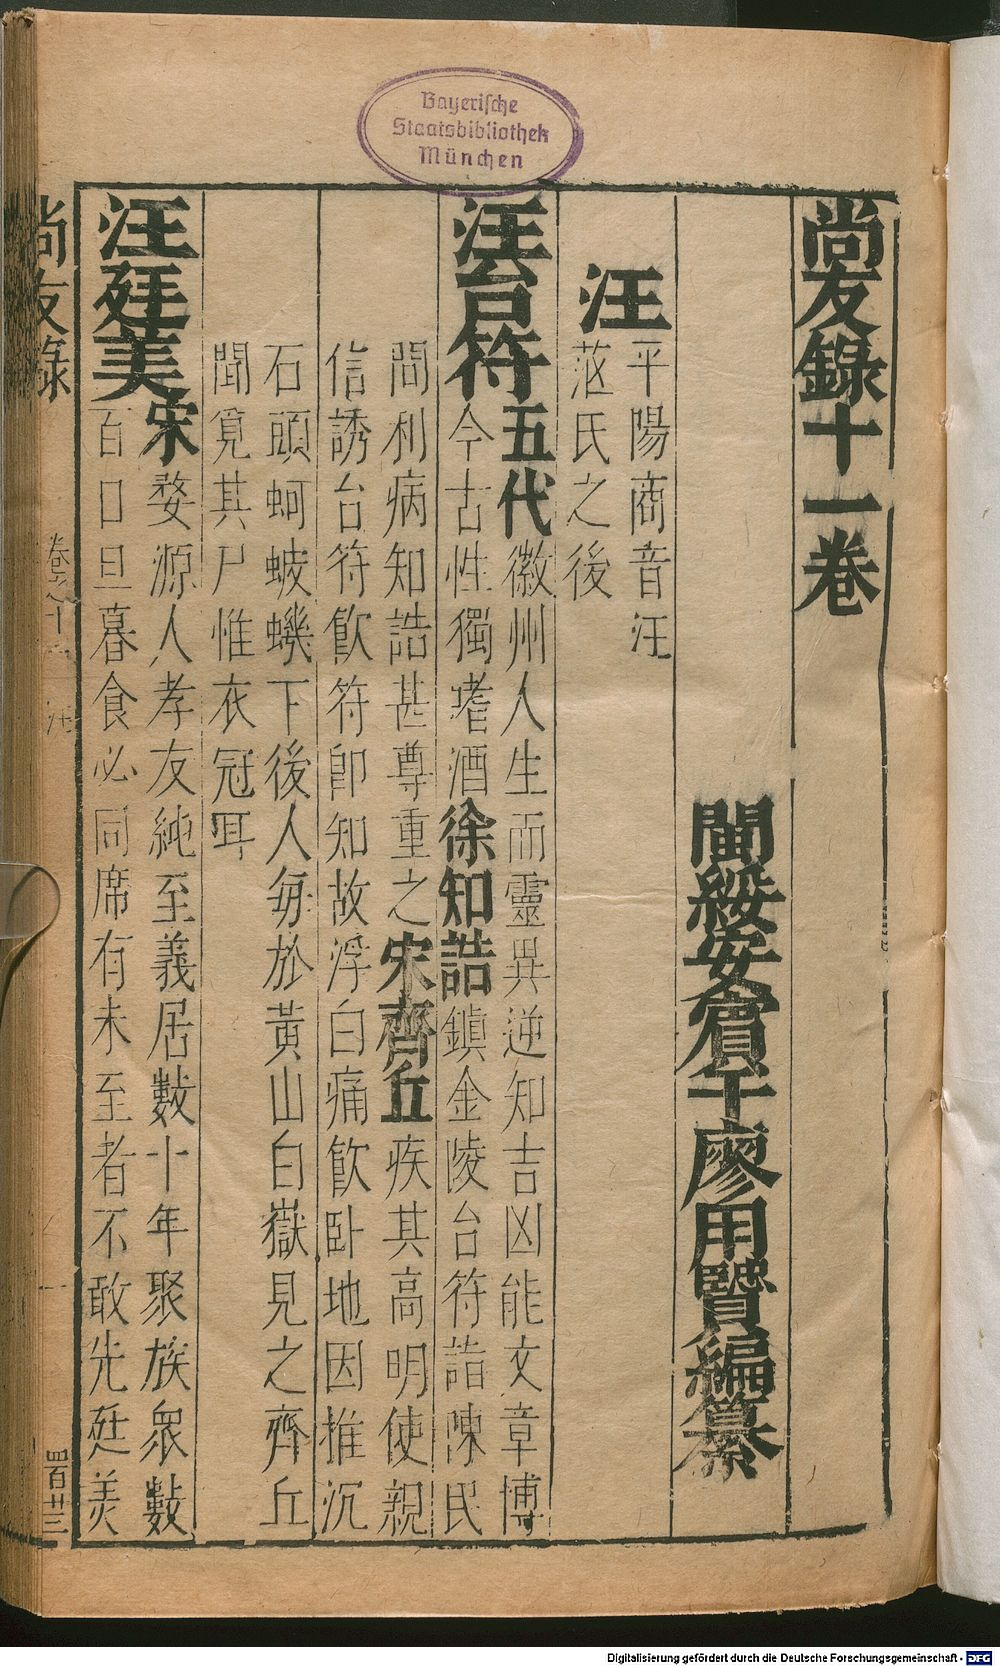 Bayerische
Staatsbibliothek
München
尚友錄十一卷
閩綏安賔于廖用賢編纂
汪
平陽商音汪
㳷氏之後
汪台符
五代徽州人生而靈異逆知吉凶能文章博
今古性獨嗜酒徐知誥鎮金陵台符詣陳民
間利病知誥甚尊重之宋齊丘疾其高明使親
信誘台符飲符卽知故浮白痛飲卧地因推沉
石頭蚵蚾磯下後人毎於黃山白嶽見之齊丘
聞覓其尸惟衣冠耳
汪廷美
宋婺源人孝友純至義居數十年聚族衆數
百口旦暮食必同席有未至者不敢先廷美
尚友錄
卷之十一
汪
一
四百廿三
Digitalisierung gefördert durch die Deutsche Forschungsgemeinschaft - DFG